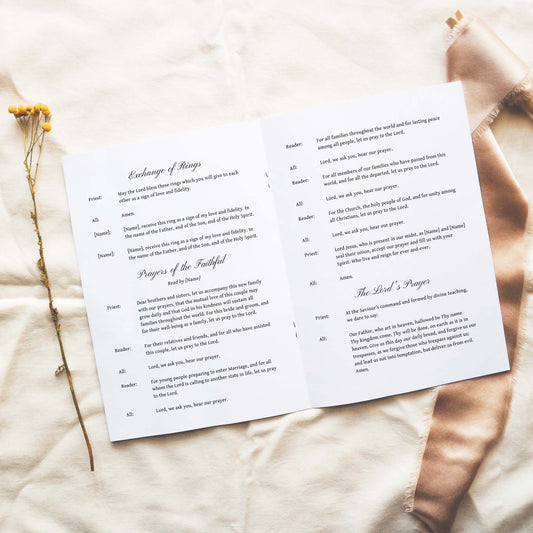 Exchange of Rings
Priest: May the Lord bless these rings which you will give to each
other as a sign of love and fidelity.
All: Amen.
[Name]: [Name], receive this ring as a sign of my love and fidelity. In
the name of the Father, and of the Son, and of the Holy Spirit.
[Name]: [Name], receive this ring as a sign of my love and fidelity. In
the name of the Father, and of the Son, and of the Holy Spirit.
Prayers of the Faithful
Read by [Name]
Priest: Dear brothers and sisters, let us accompany this new family
with our prayers, that the mutual love of this couple may
grow daily and that God in his kindness will sustain all
families throughout the world. For this bride and groom, and
for their well-being as a family, let us pray to the Lord.
Reader: For their relatives and friends, and for all who have assisted
this couple, let us pray to the Lord.
All: Lord, we ask you, hear our prayer.
Reader: For young people preparing to enter Marriage, and for all
whom the Lord is calling to another state in life, let us pray
to the Lord.
All: Lord, we ask you, hear our prayer.
Reader: For all families throughout the world and for lasting peace
among all people, let us pray to the Lord.
All: Lord, we ask you, hear our prayer.
Reader: For all members of our families who have passed from this
world, and for all the departed, let us pray to the Lord.
All: Lord, we ask you, hear our prayer.
Reader: For the Church, the holy people of God, and for unity among
all Christians, let us pray to the Lord.
All: Lord, we ask you, hear our prayer.
Priest: Lord Jesus, who is present in our midst, as [Name] and [Name]
seal their union, accept our prayer and fill us with your
Spirit. Who live and reign for ever and ever.
All: Amen.
The Lord's Prayer
Priest: At the Saviour's command and formed by divine teaching,
we dare to say:
All: Our Father, who art in heaven, hallowed be Thy name.
Thy kingdom come, Thy will be done, on earth as it is in
heaven. Give us this day our daily bread, and forgive us our
trespasses, as we forgive those who trespass against us,
and lead us not into temptation, but deliver us from evil.
Amen.